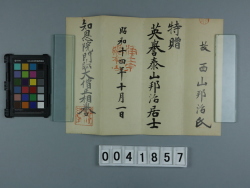 故 西山邦治氏
特贈
英誉泰山邦治居士
昭和十四年十月一日
知恩院門跡大僧正
0041857